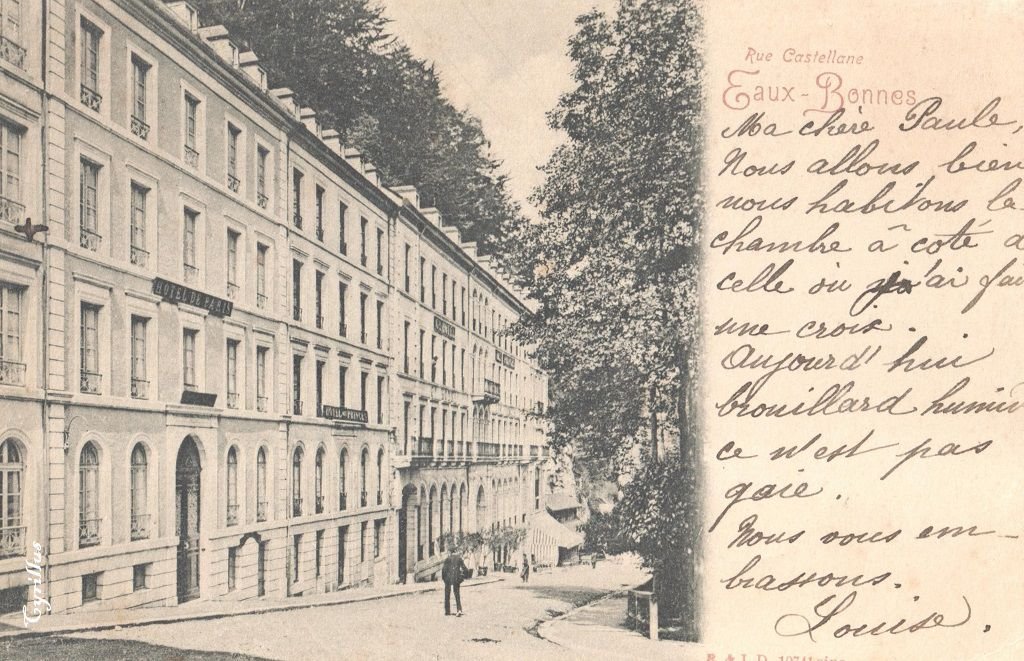 Rue Castellane
Eaux-Bonnes
Ma chère Paule,
Nous allons bien
nous habitons la
chambre à coté d
celle où j'ai fai
une croix.
Aujourd'hui
brouillard humid
ce n'est pas
gaie.
Nous vous em-
brassons.
Louise.
HOTEL DE PARIS
HOTEL DES PRINCES
Cyrillus